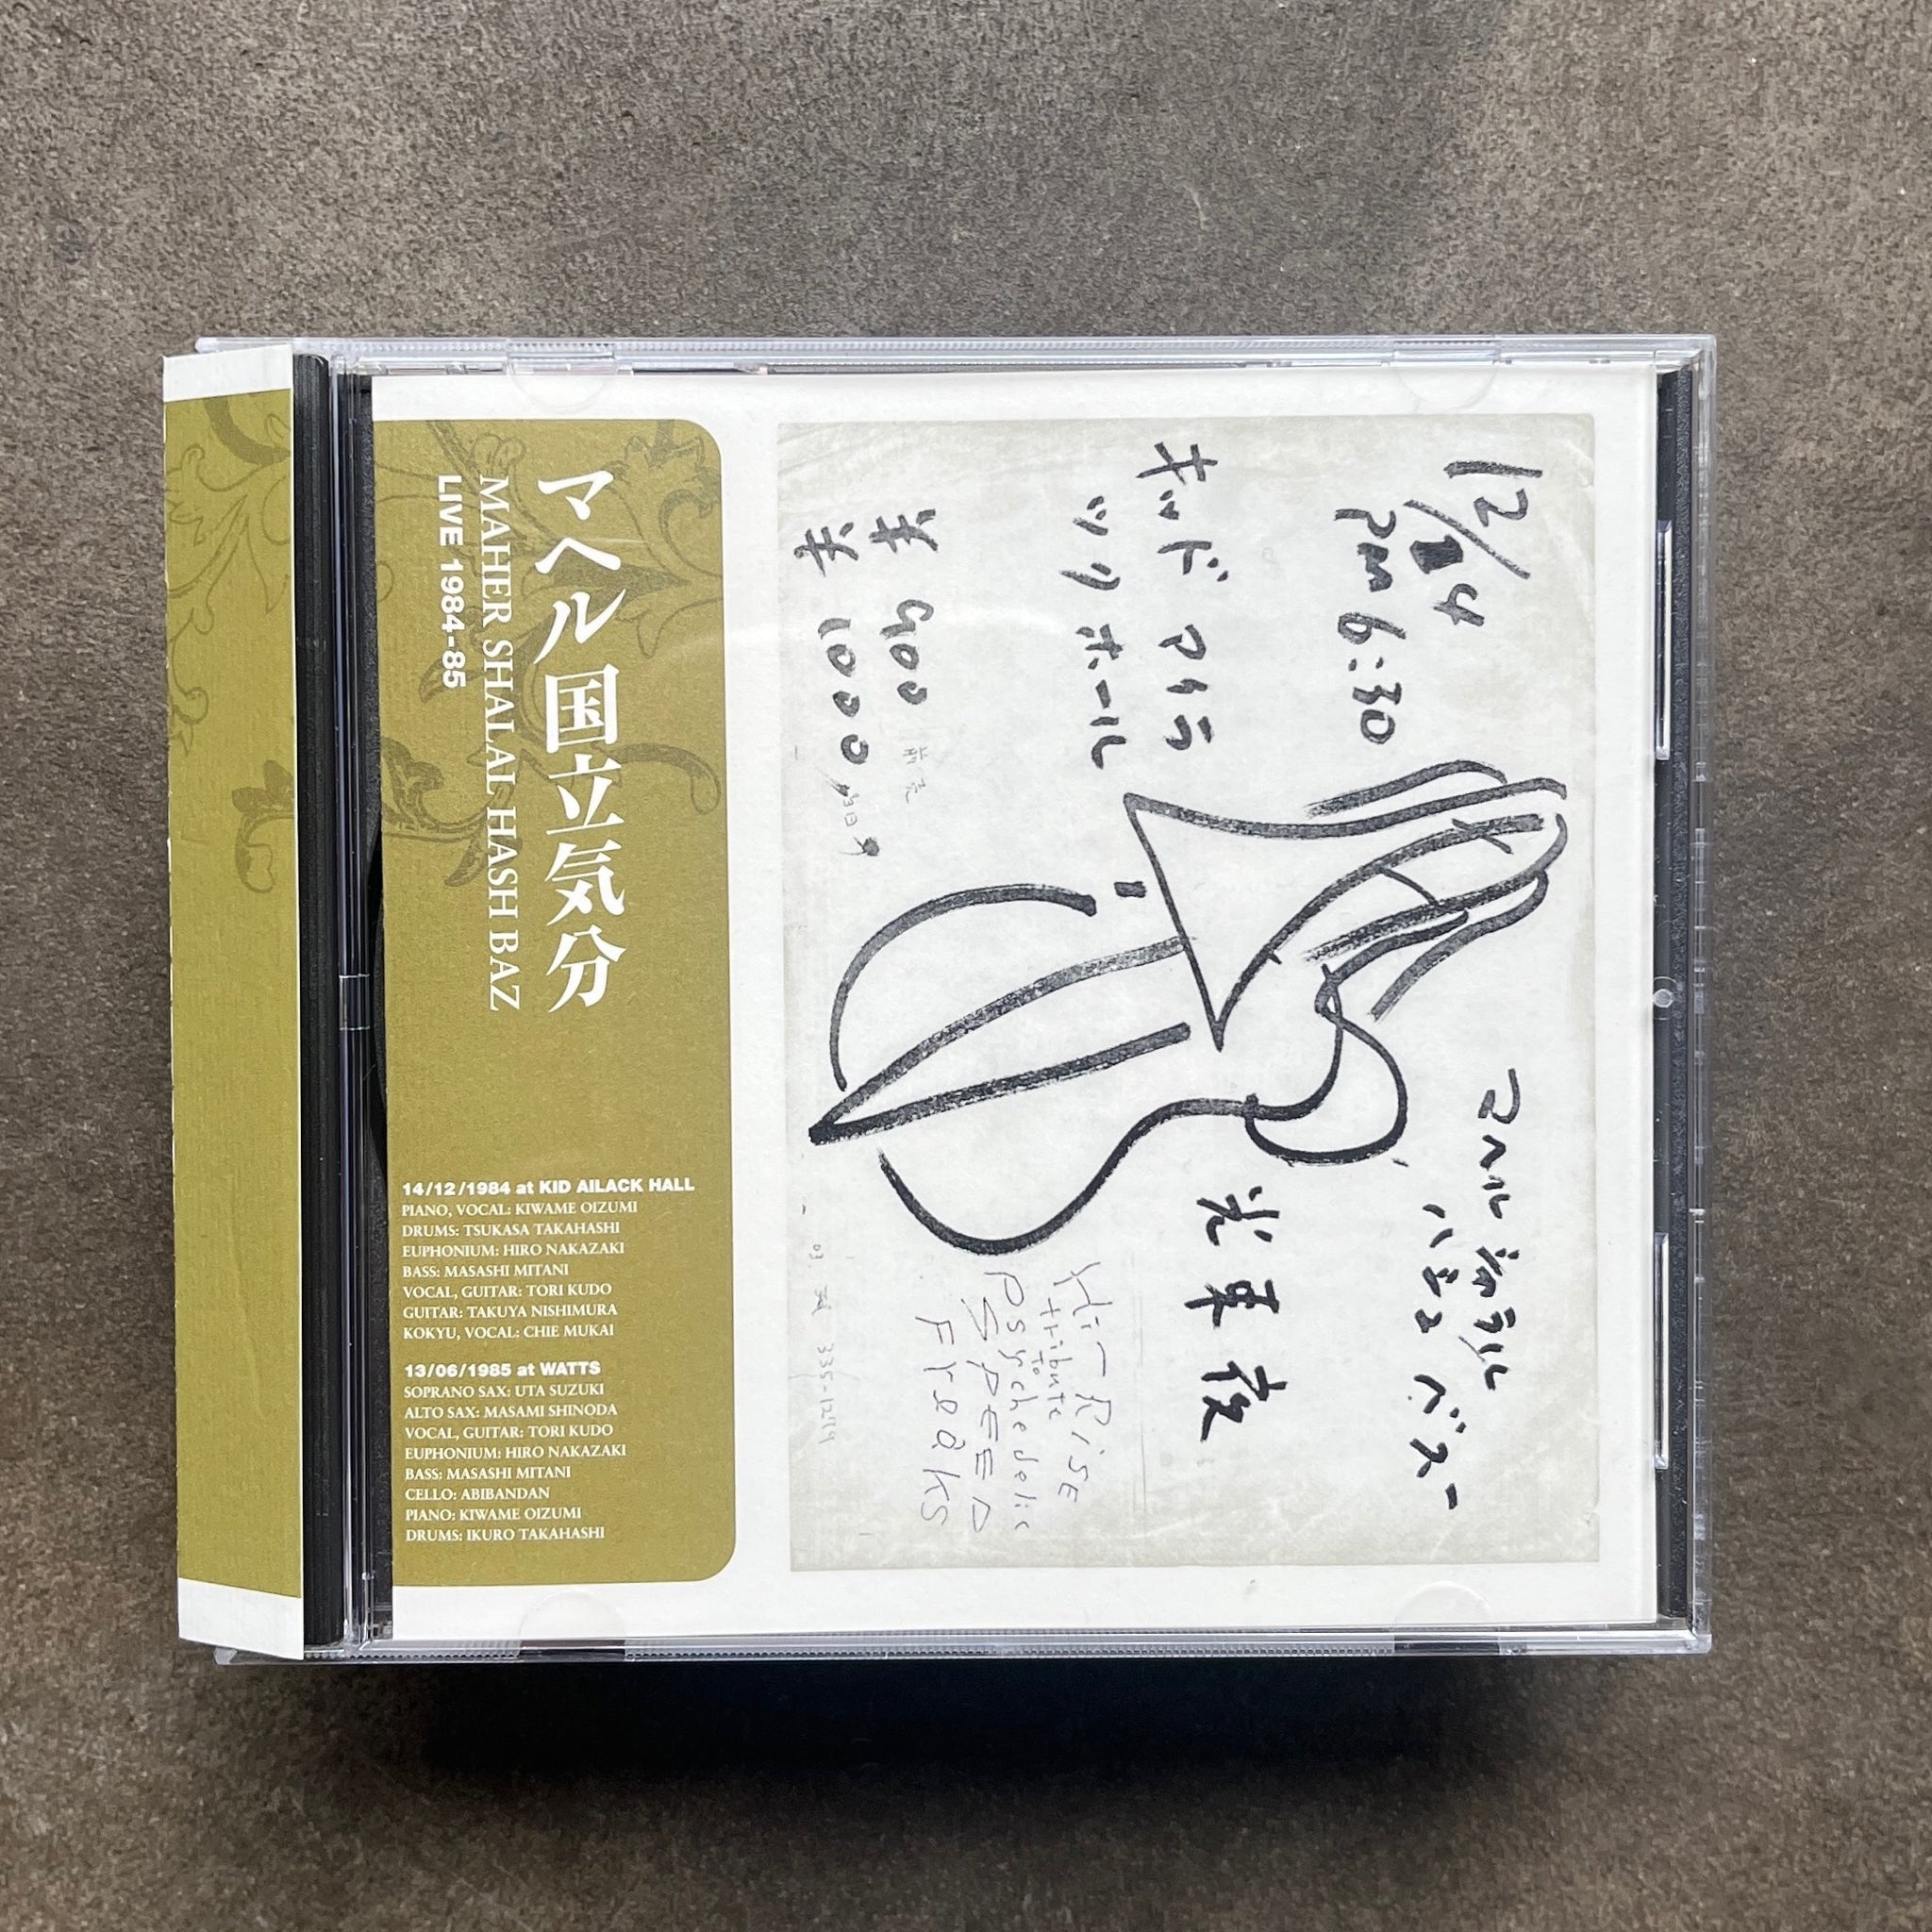 マヘル国立気分
MAHER SHALAL HASH BAZ
LIVE 1984-85
14/12/1984 at KID AILACK HALL
PIANO, VOCAL: KIWAME OIZUMI
DRUMS: TSUKASA TAKAHASHI
EUPHONIUM: HIRO NAKAZAKI
BASS: MASASHI MITANI
VOCAL, GUITAR: TORI KUDO
GUITAR: TAKUYA NISHIMURA
KOKYU, VOCAL: CHIE MUKAI
13/06/1985 at WATTS
SOPRANO SAX: UTA SUZUKI
ALTO SAX: MASAMI SHINODA
VOCAL, GUITAR: TORI KUDO
EUPHONIUM: HIRO NAKAZAKI
BASS: MASASHI MITANI
CELLO: ABIBANDAN
PIANO: KIWAME OIZUMI
DRUMS: IKURO TAKAHASHI
12/14
pm 6:30
キッド アラ
ック ホール
¥ 900 前売
¥ 1000 当日
マヘル シャラル
ハシュ バズ
光束夜
Hi-Rise
tribute
To
Psychedelic
SPEED
Freaks